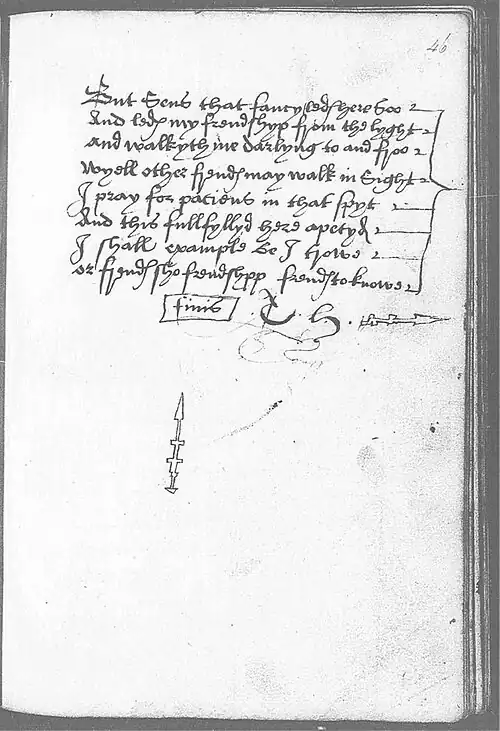 46
But sens that fancy leds here soo
And leds my frendshyp from the lyght
And walkyth me darlyng to and froo
wyell other frends may walk in sight
I pray for paciens in that spyt
And this fullfyllyd here apetyd
I shall example be I trowe
or frends sho frendshypp frends to knowe
finis T. h.